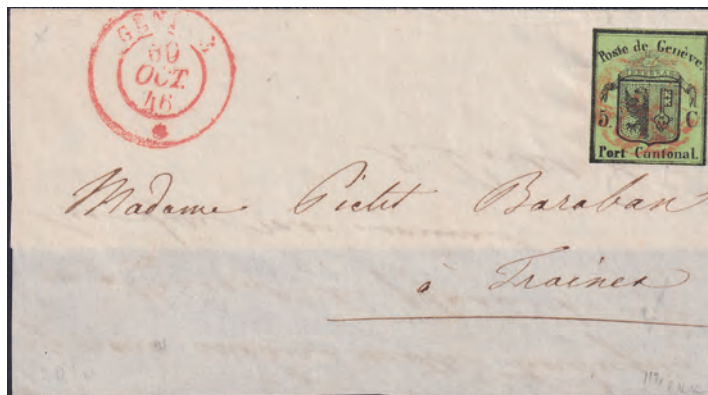 GENÈVE
30
OCT.
46
Poste de Genève.
5. C
Port Cantonal.
Madame Pictet Baraban
à Troinex